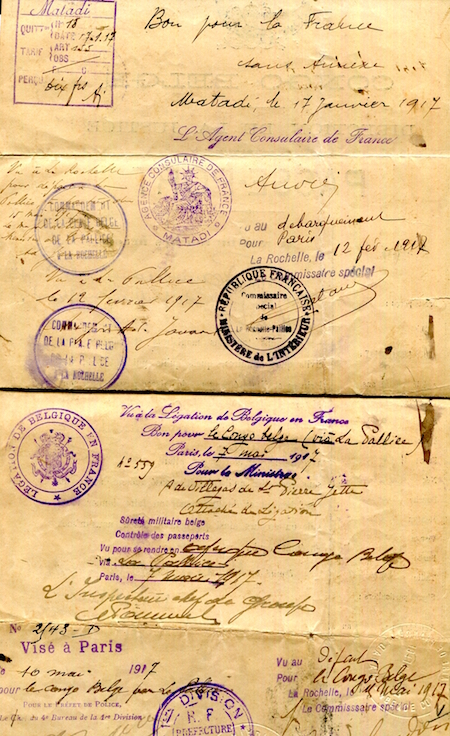 Matadi
QUITT N° 18
DATE 17.1.17
TARIF ART 155
OBS
PERÇU Dix frs
Bon pour la France
sans Annexe
Matadi, le 17 Janvier 1917
L'Agent Consulaire de France
AGENCE CONSULAIRE DE FRANCE
MATADI
Vu à La Rochelle
COMMANDEMENT
DE LA PLACE BELGE
DE LA PALLICE
A LA ROCHELLE
Vu au débarquement
Pour Paris
La Rochelle, le 12 fév 1917
Le Commissaire spécial
Vu à La Pallice
le 12 février 1917
RÉPUBLIQUE FRANÇAISE
Commissaire
Spécial
de
La Rochelle-Pallice
MINISTÈRE de L'INTÉRIEUR
COMMANDEMENT
DE LA PLACE BELGE
DE LA PALLICE
A LA ROCHELLE
LÉGATION DE BELGIQUE EN FRANCE
Vu à la Légation de Belgique en France
Bon pour le Congo belge (via La Pallice)
Paris, le 7 mai 1917
N° 559
Pour le Ministre
de Villegas de St Pierre Jette
Attaché de Légation
Sûreté militaire belge
Contrôle des passeports
Vu pour se rendre en Congo Belge
Via La Pallice
Paris, le 7 mai 1917
L'Inspecteur chef de Groupe
N° 2143-D
Visé à Paris
le 10 mai 1917
pour le Congo Belge par La Pallice
POUR LE PRÉFET DE POLICE,
Le Ch. du 4e Bureau de la 1re Division,
1re DIVISION
R.F
PREFECTURE
Vu au Départ
Pour le Congo Belge
La Rochelle, le Mai 1917
Le Commissaire spécial